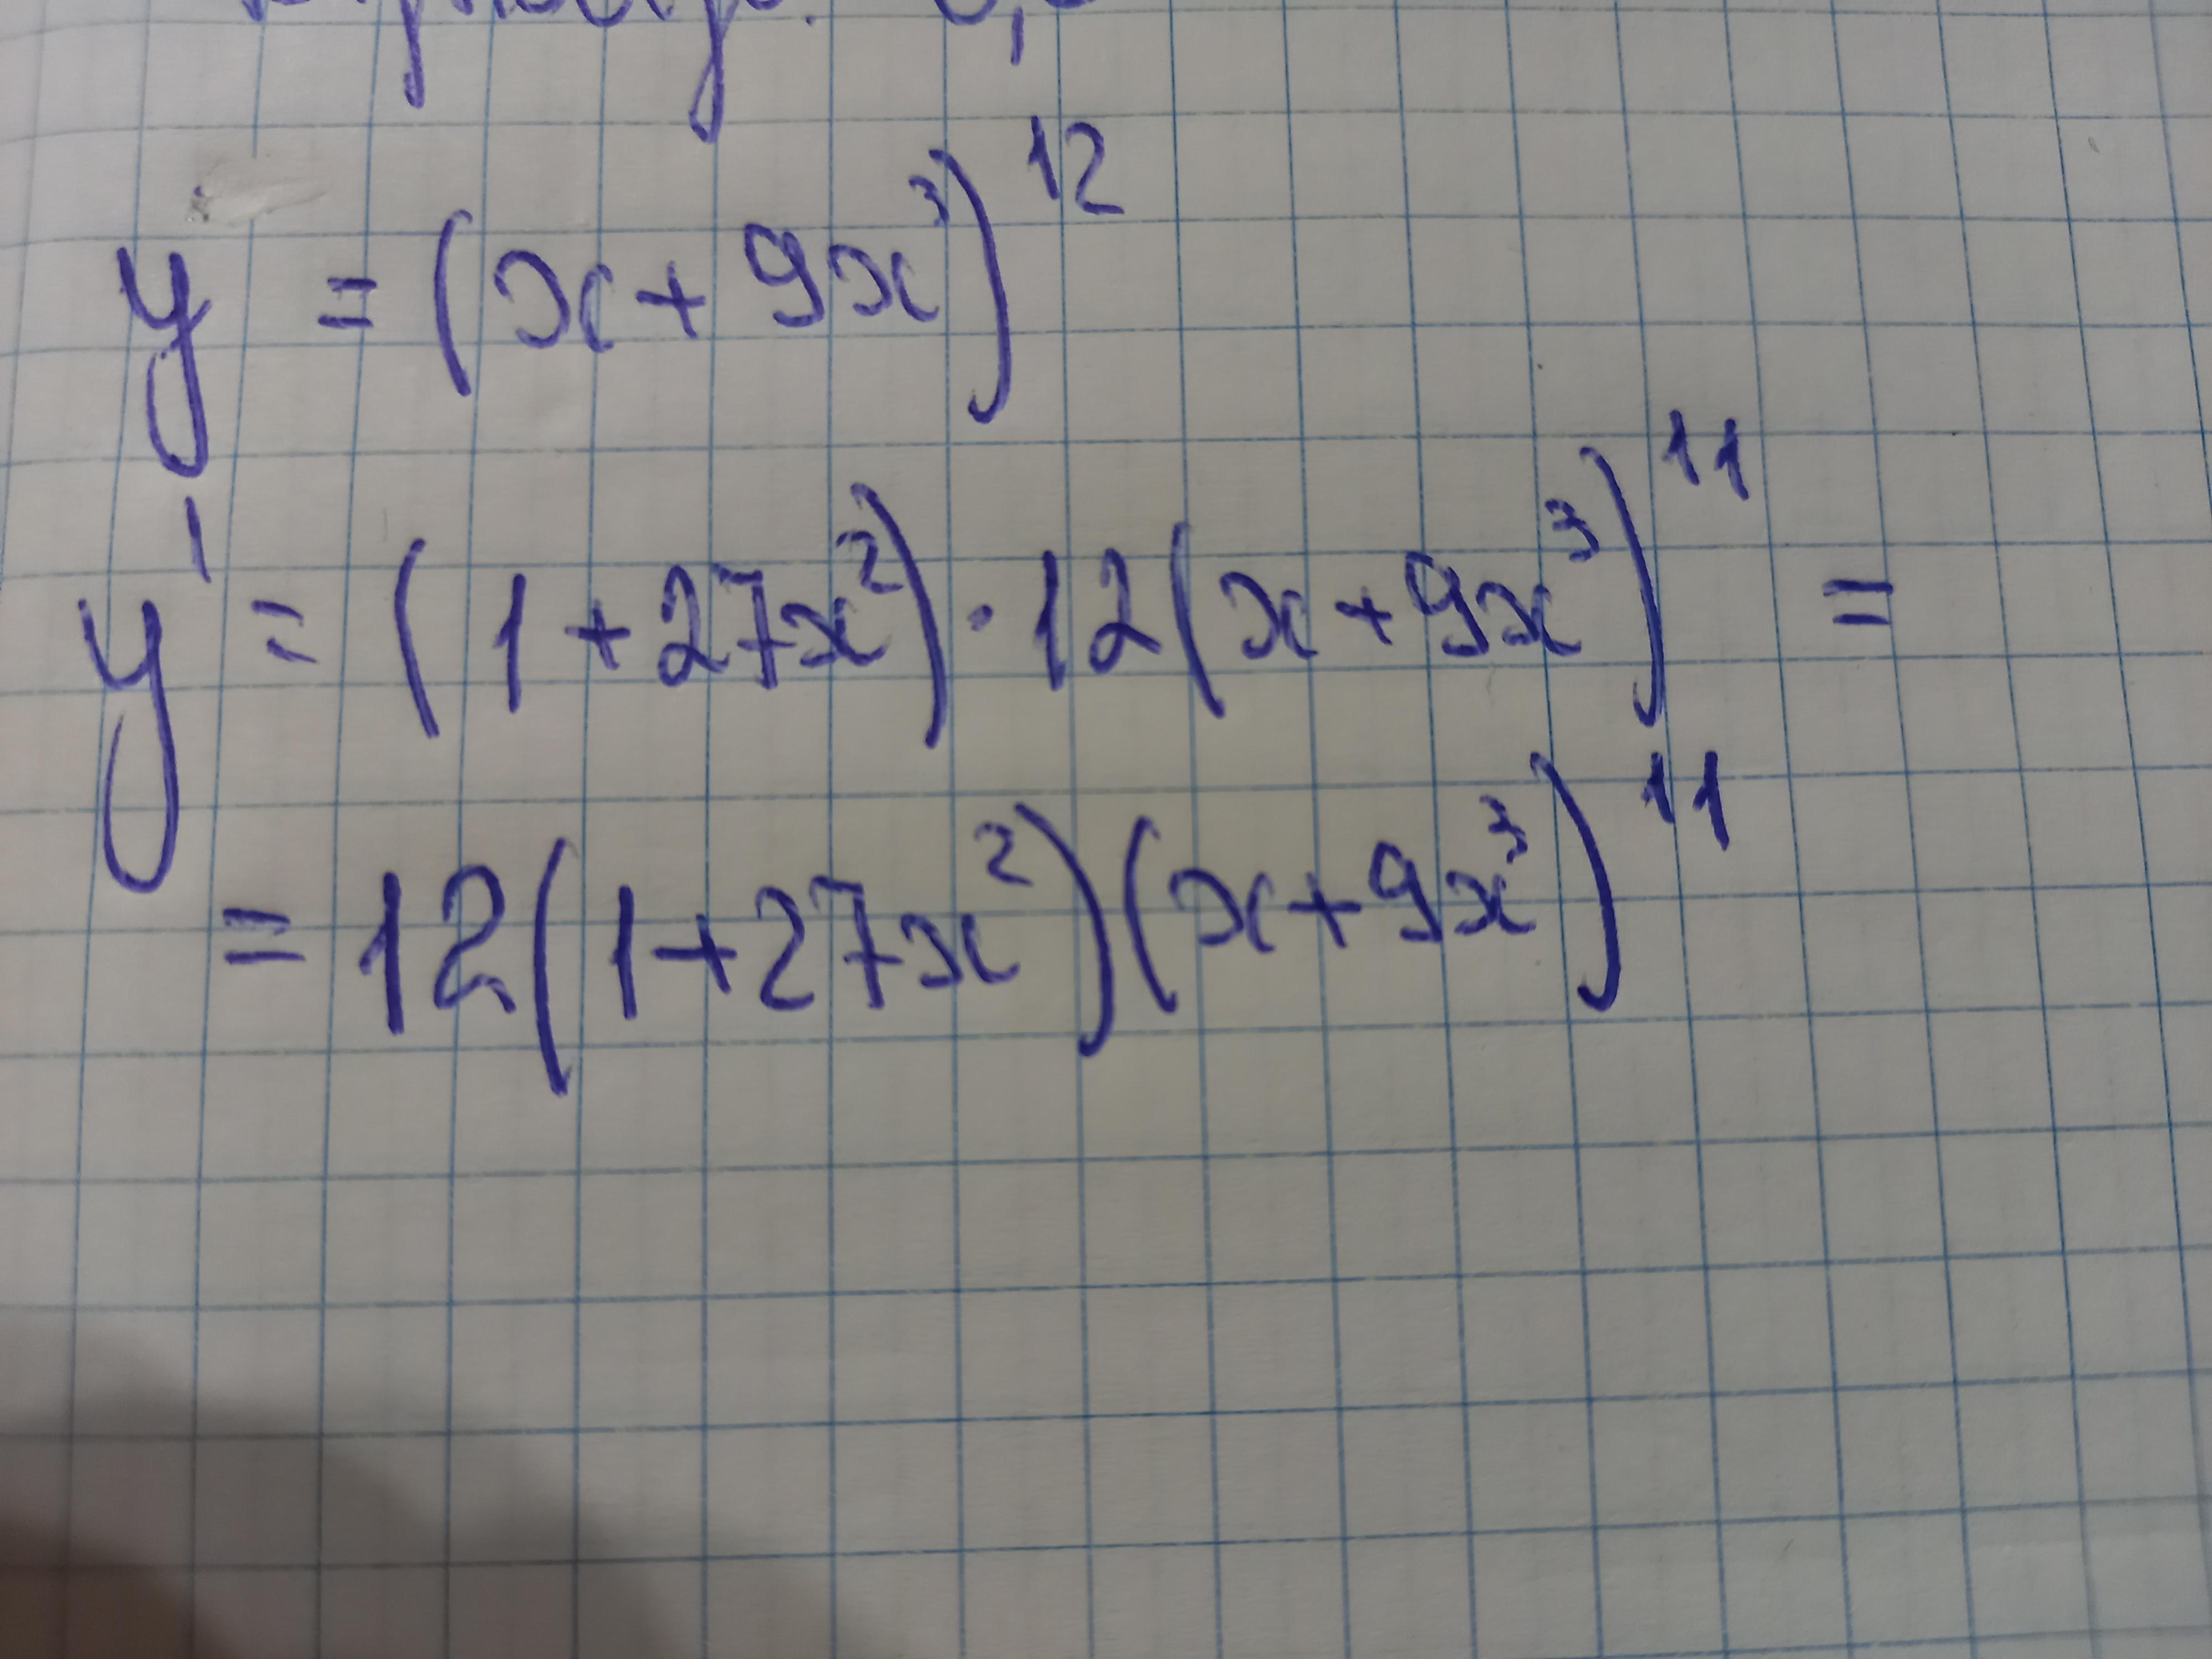 y = (x + 9x³)¹²
y' = (1 + 27x²) · 12(x + 9x³)¹¹ =
= 12(1 + 27x²)(x + 9x³)¹¹